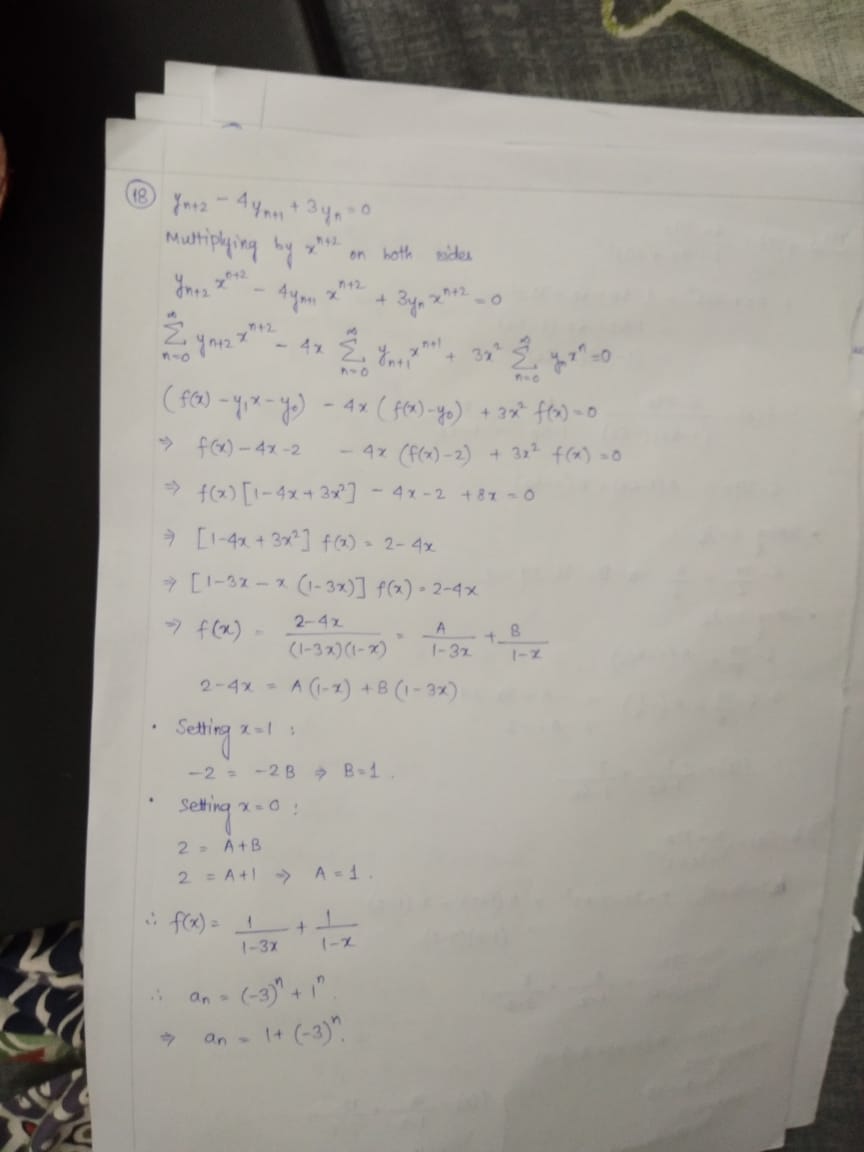 (18) yₙ₊₂ - 4yₙ₊₁ + 3yₙ = 0
Multiplying by xⁿ⁺² on both sides
yₙ₊₂ xⁿ⁺² - 4yₙ₊₁ xⁿ⁺² + 3yₙ xⁿ⁺² = 0
∞Σn=0 yₙ₊₂ xⁿ⁺² - 4x ∞Σn=0 yₙ₊₁ xⁿ⁺¹ + 3x² ∞Σn=0 yₙ xⁿ = 0
(f(x) - y₁x - y₀) - 4x (f(x) - y₀) + 3x² f(x) = 0
⇒ f(x) - 4x - 2 - 4x (f(x) - 2) + 3x² f(x) = 0
⇒ f(x) [1 - 4x + 3x²] - 4x - 2 + 8x = 0
⇒ [1 - 4x + 3x²] f(x) = 2 - 4x
⇒ [1 - 3x - x (1 - 3x)] f(x) = 2 - 4x
⇒ f(x) = (2 - 4x)/((1 - 3x)(1 - x)) = A/(1 - 3x) + B/(1 - x)
2 - 4x = A(1 - x) + B(1 - 3x)
• Setting x = 1 :
-2 = -2B ⇒ B = 1 .
• Setting x = 0 :
2 = A + B
2 = A + 1 ⇒ A = 1 .
∴ f(x) = 1/(1 - 3x) + 1/(1 - x)
∴ aₙ = (-3)ⁿ + 1ⁿ.
⇒ aₙ = 1 + (-3)ⁿ.